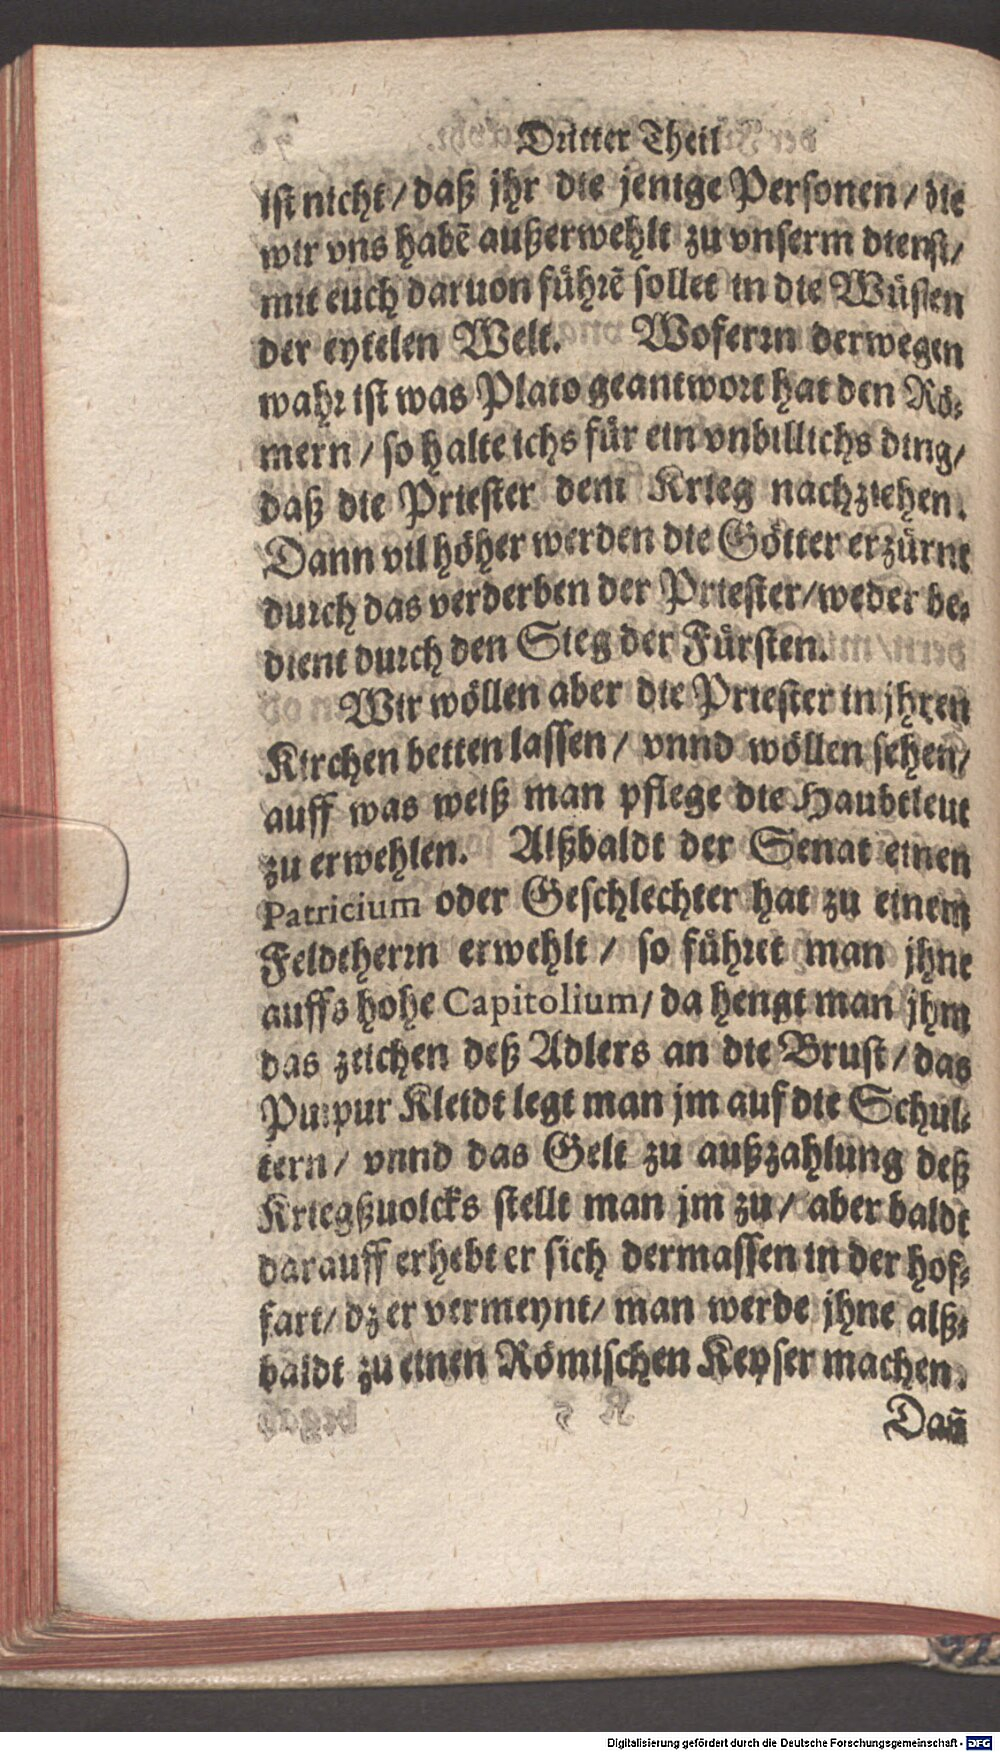 Dritter Theil
ist nicht / daß jhr die jenige Personen / die
wir vns habē außerwehlt zu vnserm dienst /
mit euch daruon führē sollet in die Wüsten
der eytelen Welt. Woferrn derwegen
wahr ist was Plato geantwort hat den Rö-
mern / so halte ichs für ein vnbillichs ding /
daß die Priester dem Krieg nachziehen.
Dann vil höher werden die Götter erzürnt
durch das verderben der Priester / weder be-
dient durch den Sieg der Fürsten.
Wir wöllen aber die Priester in jhren
Kirchen betten lassen / vnnd wöllen sehen /
auff was weiß man pflege die Haubtleut
zu erwehlen. Alßbaldt der Senat einen
Patricium oder Geschlechter hat zu einem
Feldtherrn erwehlt / so führet man jhne
auffs hohe Capitolium / da hengt man jhm
das zeichen deß Adlers an die Brust / das
Purpur Kleidt legt man jm auf die Schul-
tern / vnnd das Gelt zu außzahlung deß
Kriegßuolcks stellt man jm zu / aber baldt
darauff erhebt er sich dermassen in der hof-
fart / dz er vermeynt / man werde jhne alß-
baldt zu einen Römischen Keyser machen.
Dañ
Digitalisierung gefördert durch die Deutsche Forschungsgemeinschaft - DFG